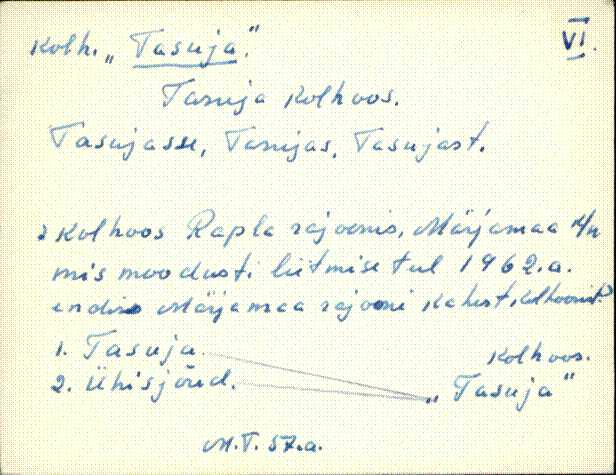 Kolh. „Tasuja". VI.
Tasuja Kolhoos.
Tasujasse, Tasujas, Tasujast.
Kolhoos Rapla rajoonis, Märjamaa k/n
mis moodust. liitmise tul 1962.a.
endise Märjamaa rajooni kahest kolhoosist
1. Tasuja. Kolhoos.
2. Ühisjõud. „Tasuja"
M.T. 57.a.